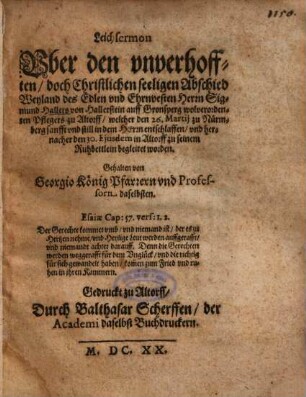 Leichsermon
Vber den vnverhoff-
ten / doch Christlichen seeligen Abschied
Weyland des Edlen vnd Ehrnvesten Herrn Sig-
mund Hallers von Hallerstein auff Gronsperg wolverorden-
ten Pflegers zu Altorff / welcher den 26. Martij zu Nürm-
berg sanfft vnd still in dem Herrn entschlaffen / vnd her-
nacher den 30. Ejusdem in Altorff zu seinem
Ruhbettlein begleitet worden.
Gehalten von
Georgio König Pfarrern vnd Profes-
sorn daselbsten.
Esaiæ Cap: 57. vers: 1. 2.
Der Gerechte kommet vmb / vnd niemand ist / der es zu
Hertzen neme / vnd Heylige leut werden auffgerafft /
vnd niemandt achtet darauff. Denn die Gerechten
werden weggerafft für dem Unglück / vnd die richtig
für sich gewandelt haben / komen zum Fried vnd ru-
hen in jhren Kammern.
Gedruckt zu Altorff /
Durch Balthasar Scherffen / der
Academi daselbst Buchdruckern.
M. DC. XX.